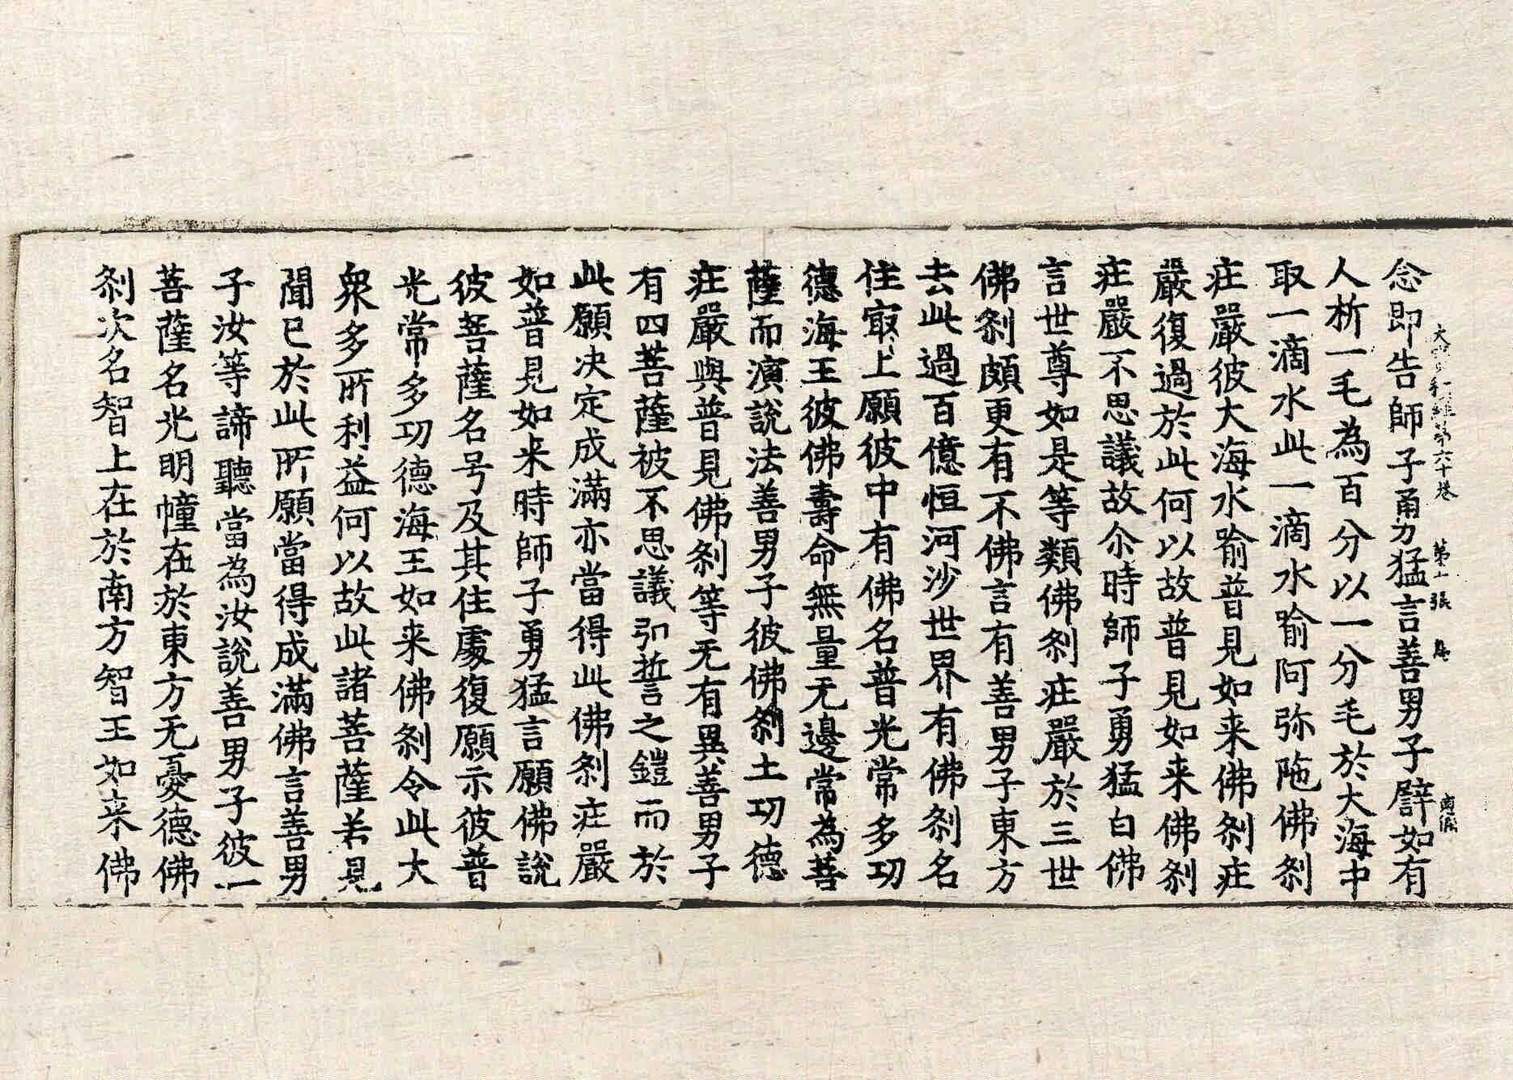 大寶積經第六十卷 第十張 鳥
念即告師子勇猛言善男子譬如有
人析一毛為百分以一分毛於大海中
取一滴水此一滴水喻阿弥陁佛刹
庄嚴彼大海水喻普見如来佛刹庄
嚴復過於此何以故普見如来佛刹
庄嚴不思議故尒時師子勇猛白佛
言世尊如是等類佛刹庄嚴於三世
佛刹頗更有不佛言有善男子東方
去此過百億恒河沙世界有佛刹名
住㝡上願彼中有佛名普光常多功
德海王彼佛壽命無量无邊常為菩
薩而演說法善男子彼佛刹土功德
庄嚴與普見佛刹等无有異善男子
有四菩薩被不思議弘誓之鎧而於
此願决定成滿亦當得此佛刹庄嚴
如普見如来時師子勇猛言願佛說
彼菩薩名号及其住處復願示彼普
光常多功德海王如来佛刹令此大
衆多所利益何以故此諸菩薩若見
聞已於此所願當得成滿佛言善男
子汝等諦聽當為汝說善男子彼一
菩薩名光明幢在於東方无憂德佛
刹次名智上在於南方智王如来佛